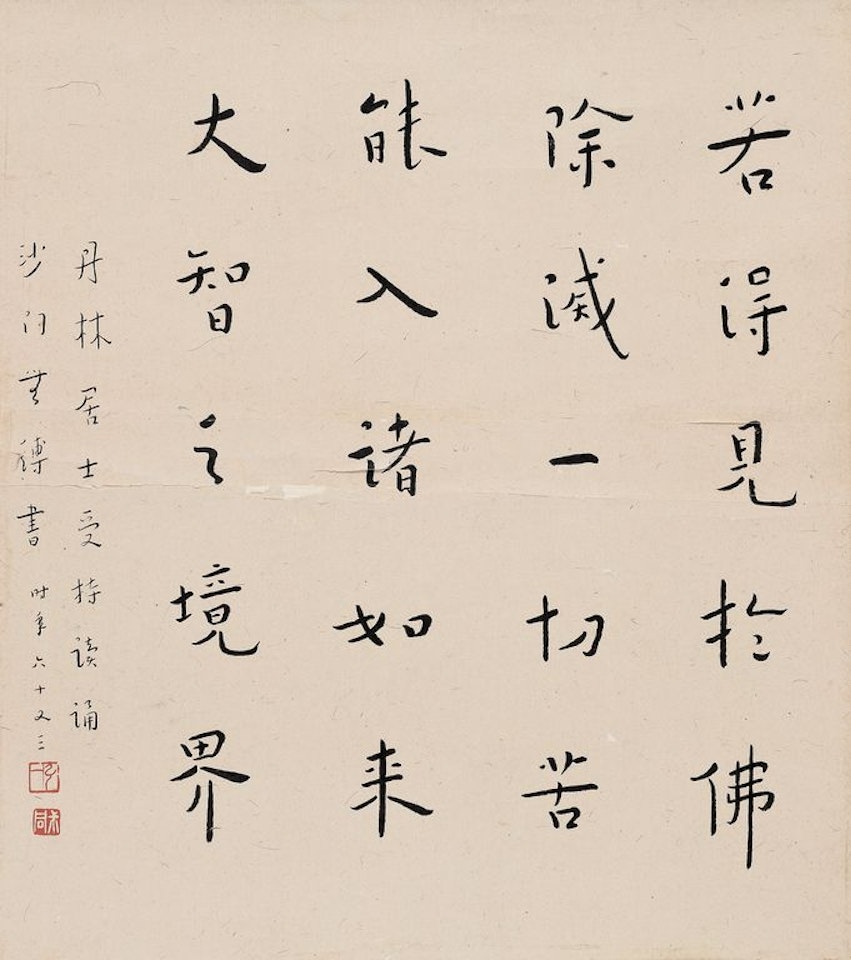 若得見於佛
除滅一切苦
能入諸如来
大智之境界
丹林居士受持讀誦
沙門無縛書 时年六十又三